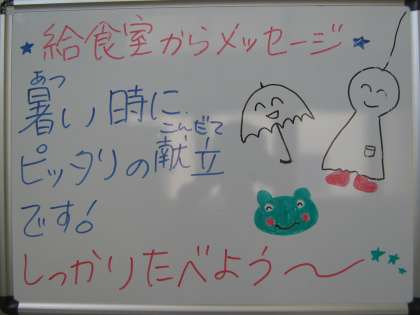 ★給食室からメッセージ★
あつ
暑い時に
こんだて
ピッタリの献立
です!
しっかりたべよう〜